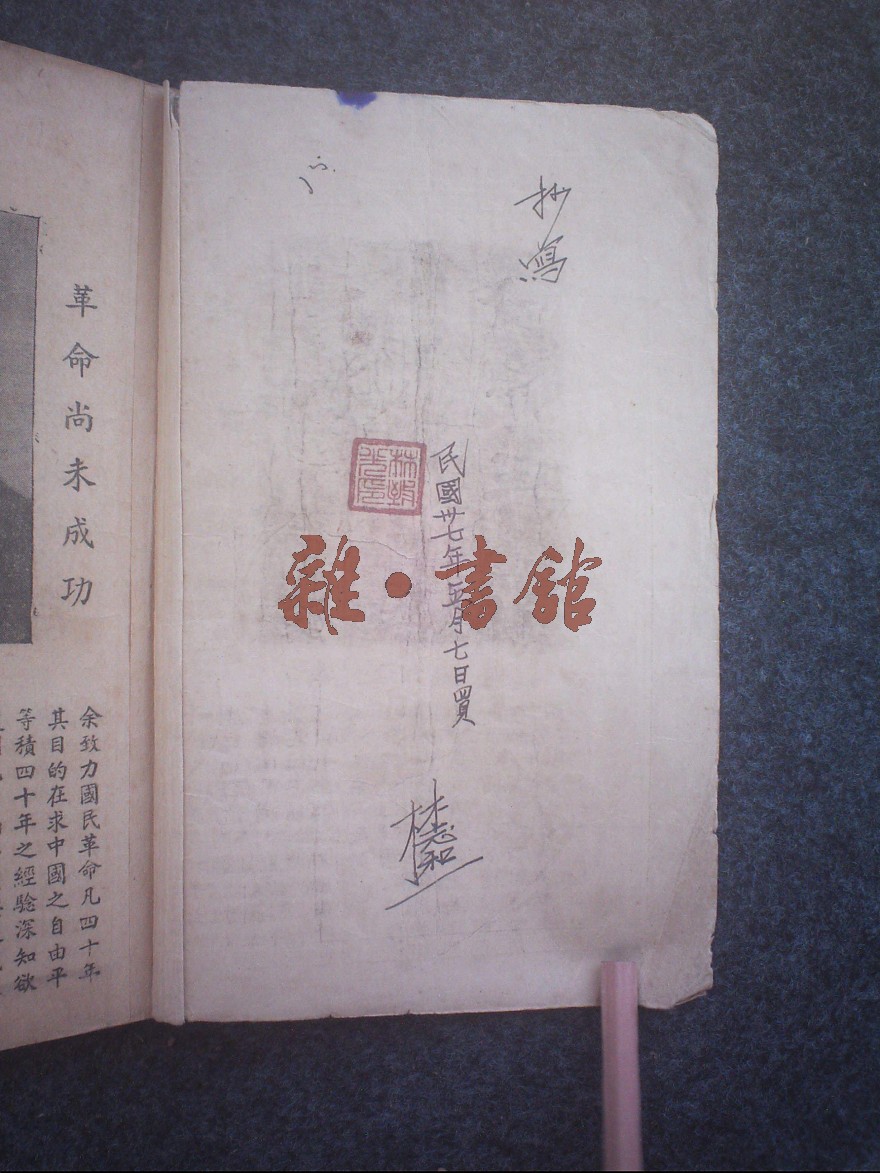 抄寫
民國卅七年五月七日買
林志和
雜·書館
革命尚未成功
余致力國民革命凡四十年
其目的在求中國之自由平
等積四十年之經驗深知欲